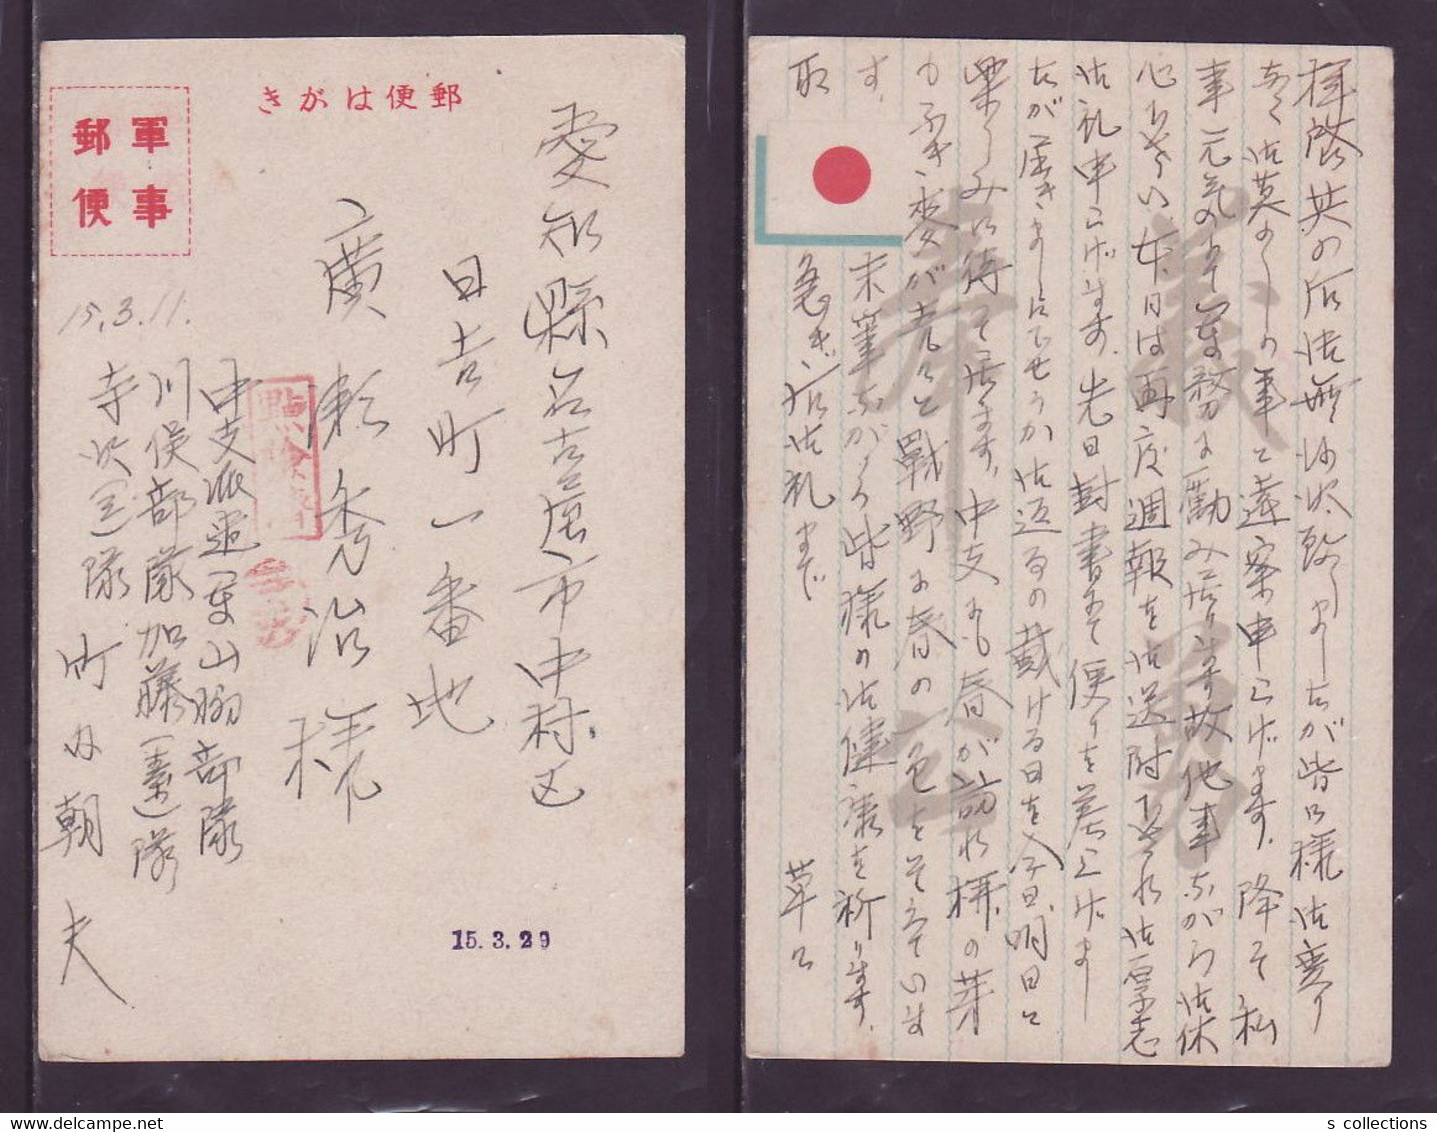 郵便はがき
軍事
郵便
愛知縣名古屋市中村区
日吉町一番地
廣瀬秀治様
15.3.11.
中支派遣軍山脇部隊
川俣部隊加藤(憲)隊
寺沢隊
町田朝夫
點檢濟
15.3.29
義勇
奉公
拝啓其の后御無沙汰致しましたが皆々様御変り
なく御英の事と遠察申上げます。降て私
事元気のて軍務に励み居ります故他事ながら御休
心下さい、本日は再度週報を御送附下され御厚志
御礼申上げます。先日封書にて便りを差上げまし
たが届きましたでせうか御返事の戴ける日を今日、明日と
楽しみに待って居ます。中支にも春が訪れ様の芽
す。
末筆ながら皆様の御健康を祈ります。
取急ぎ右御礼まで
草々
s collections